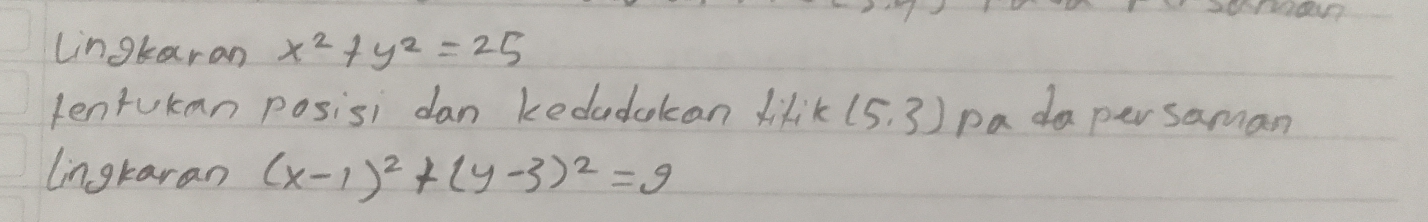 Lingkaran x² + y² = 25
tentukan posisi dan kedudukan titik (5.3) pada persaman
lingkaran (x-1)² + (y-3)² = 9